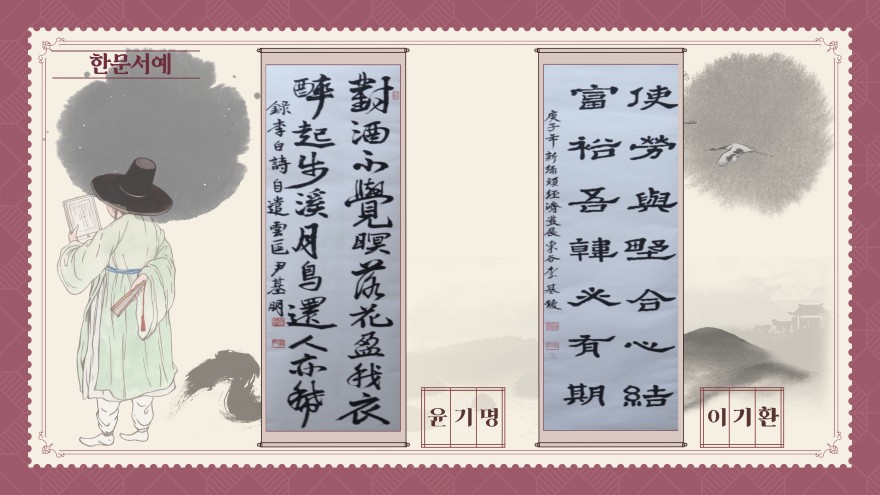 한문서예
對酒不覺暝落花盈我衣
醉起步溪月鳥還人亦稀
錄李白詩自遣 雲匡 尹基明
윤기명
使勞與合心結
富裕吾韓必有期
庚子年新綠頌經濟發展 東谷 李
이기환